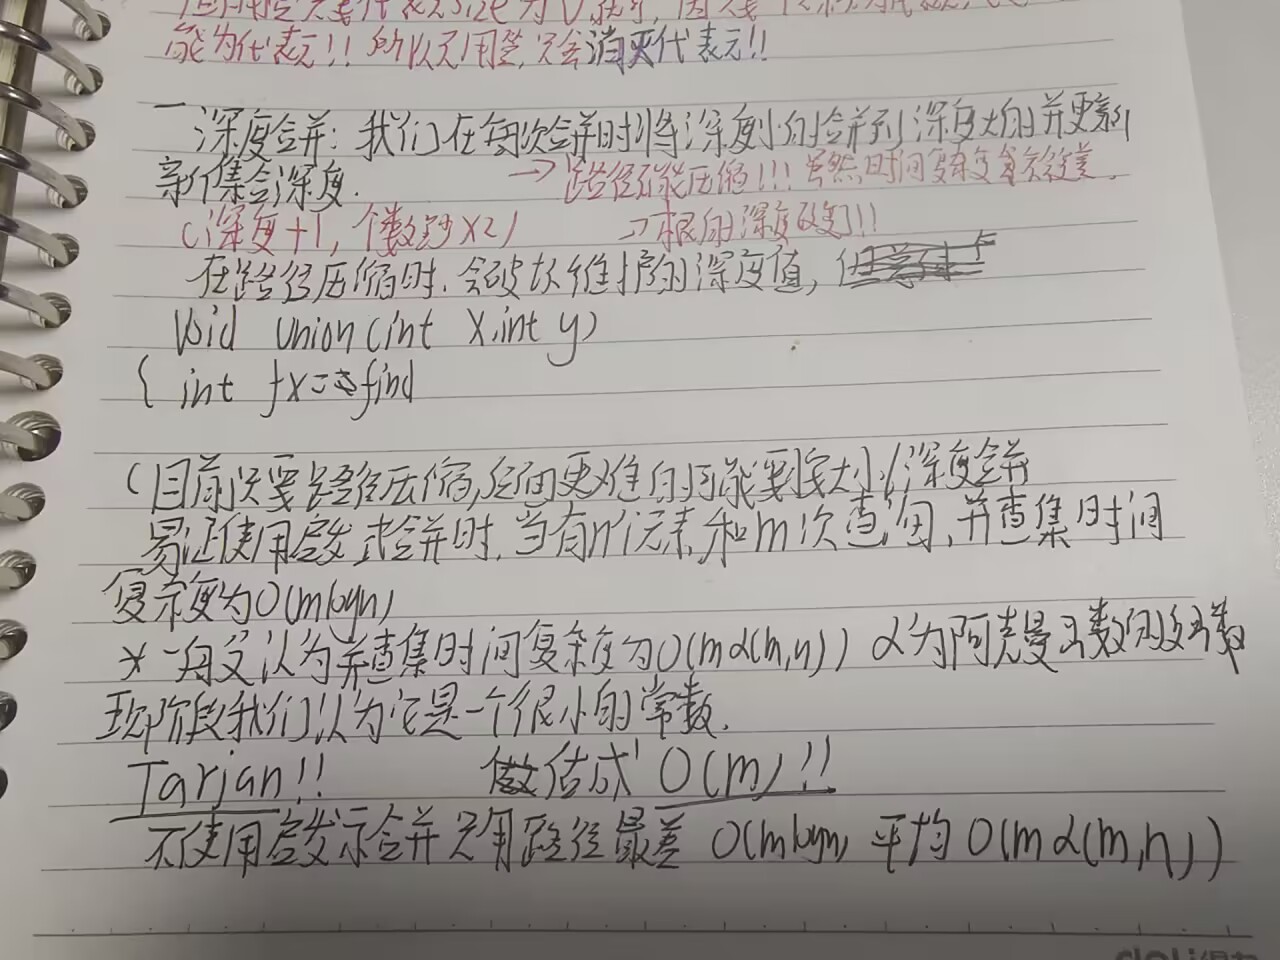 能为代表元!! 所以无用签,只会消灭代表元!!
一深度合并: 我们在每次合并时将深度小的合并到深度大的并更新
新集合深度.
→路径不能压缩!!! 虽然时间复杂度算次较差.
(深度+1, 个数致×2)
→根的深度改变!!!
在路径压缩时,会破坏维护的深度值,但
void union(int x,int y)
{ int fx=find
(目前只要路径压缩,后面更难的可能要按大小/深度合并
易证使用启发式合并时,当有n个元素和m次查询,并查集时间
复杂度为O(mlogn)
*一般认为并查集时间复杂度为O(mα(m,n)) α为阿克曼函数的反函数
现阶段我们认为它是一个很小的常数.
Tarjan!! 做估成 O(m)!!
不使用启发示合并只用路径最差 O(mlogn) 平均 O(mα(m,n))
deli得力